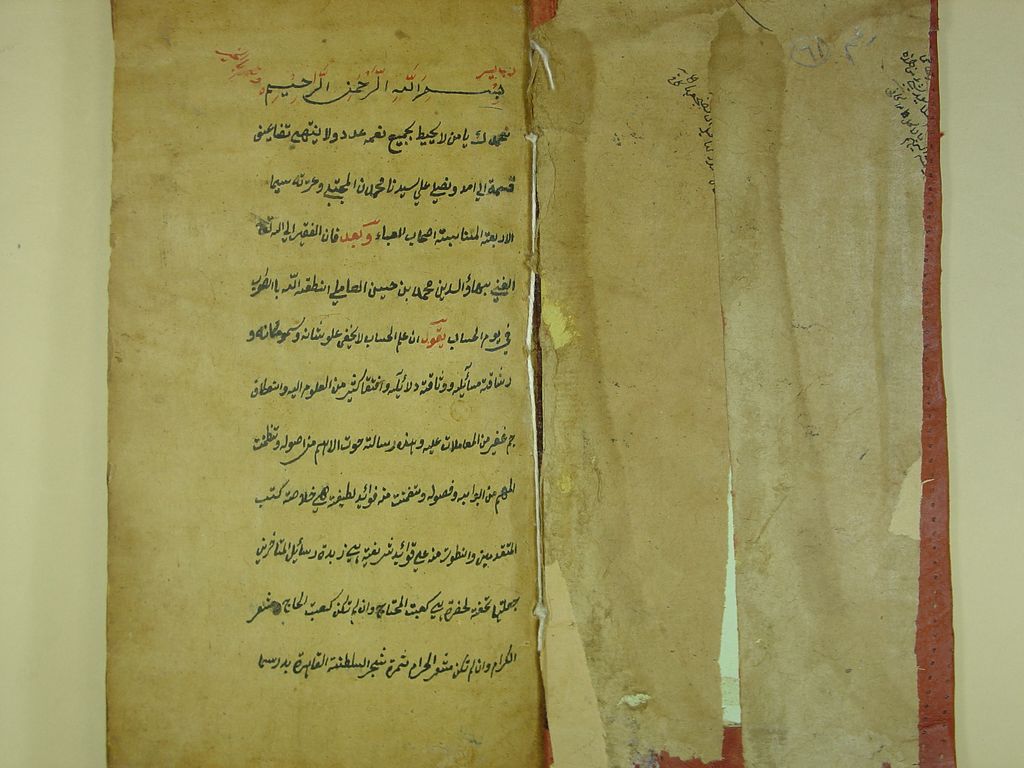 بسم الله الرحمن الرحيم
نحمدك يا من لا يحيط بجميع نعمه عدد ولا ينتهي تضاعف
قسمة الي امد ونصلي علي سيدنا محمدن المجتبي وعترته سيما
الاربعة المتناسبة اصحاب العباء وبعد فان الفقير الي الله
الغني بهاؤ الدين محمد بن حسين العاملي انطقه الله بالصواب
في يوم الحساب يقول ان علم الحساب لا يخفي علو شانه وسمو مكانه و
رشاقة مسائله ووثاقة دلائله وافتقار كثير من العلوم اليه وانعطاف
جم غفير من المعاملات عليه وهذه رسالة حوت الاهم من اصوله ونظمت
المهم من ابوابه وفصوله وتضمنت منه فوائد لطيفة هي خلاصة كتب
المتقدمين وانطوت منه علي قوائد شريفة هي زبدة رسائل المتاخرين
جعلتها تحفة لحضرة هي كعبة المحتاج وان لم تكن كعبة الحاج مشعر
الكرام وان لم تكن مشعر الحرام ثمرة شجر السلطنة القاهرة بدر سما
٦١